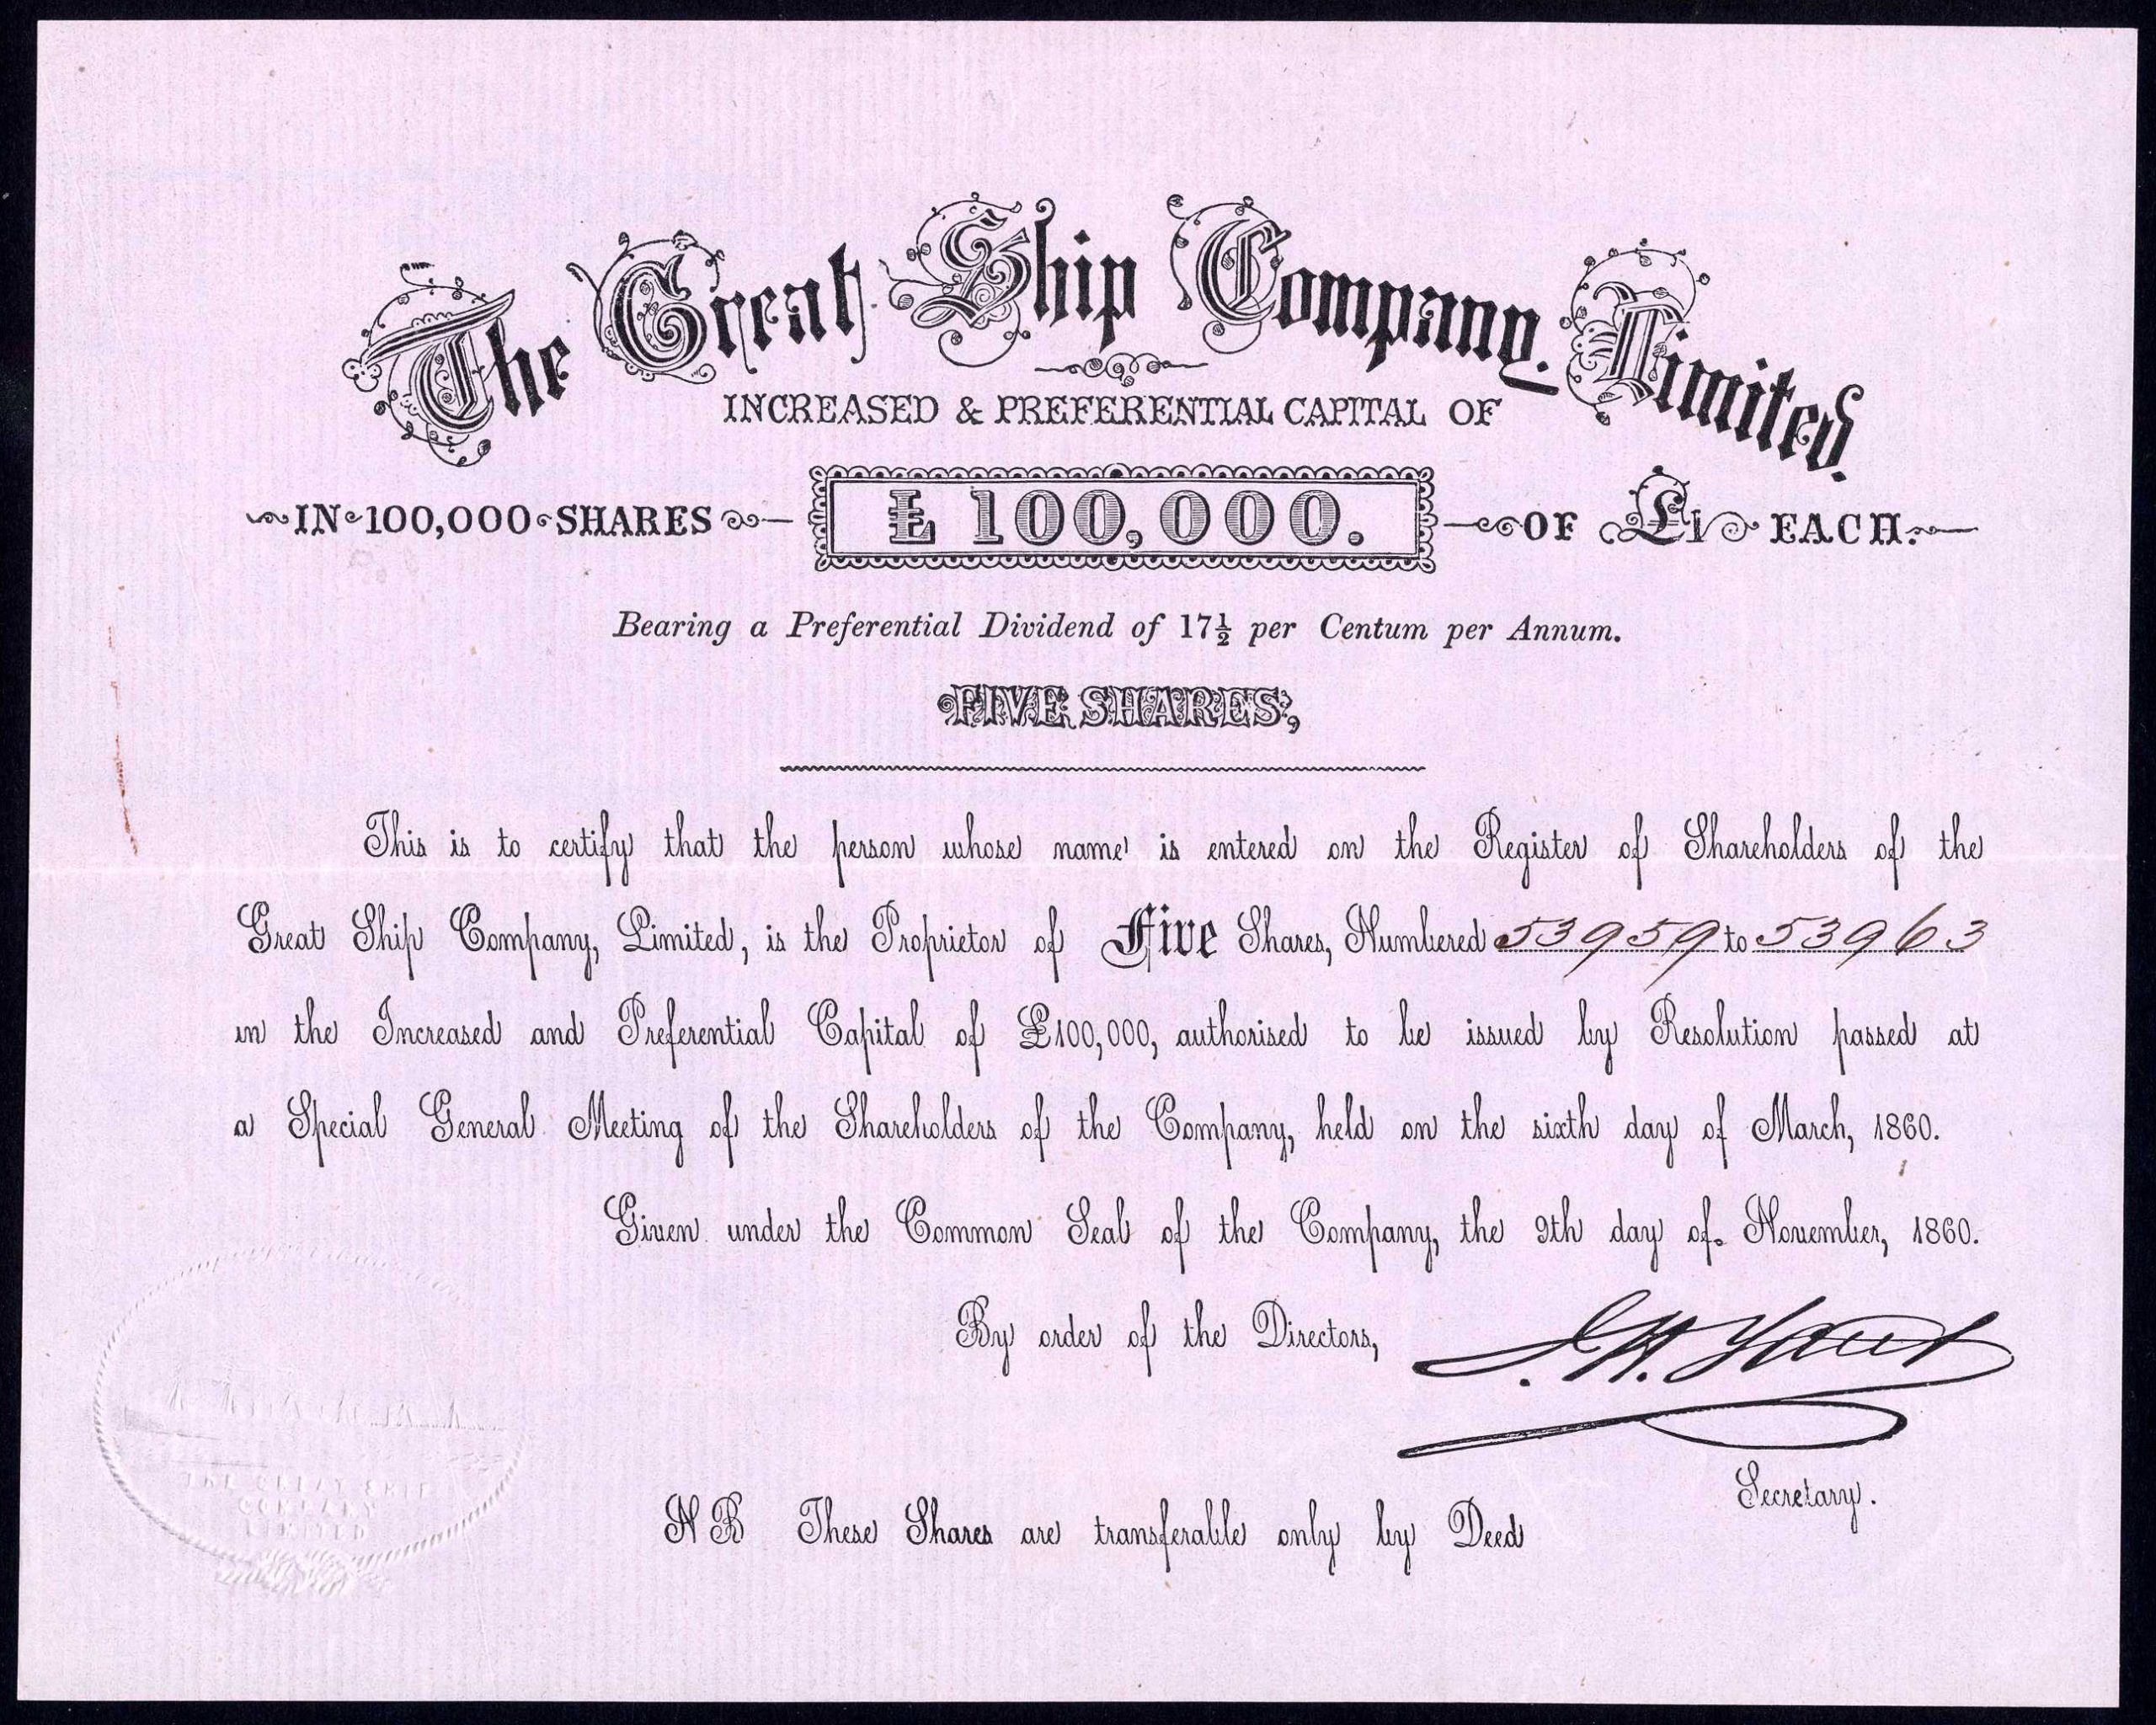 The Great Ship Company, Limited.
INCREASED & PREFERENTIAL CAPITAL OF
IN 100,000 SHARES £ 100,000. OF £1 EACH.
Bearing a Preferential Dividend of 17½ per Centum per Annum.
FIVE SHARES,
This is to certify that the person whose name is entered on the Register of Shareholders of the
Great Ship Company, Limited, is the Proprietor of Five Shares, Numbered 53959 to 53963
in the Increased and Preferential Capital of £100,000, authorised to be issued by Resolution passed at
a Special General Meeting of the Shareholders of the Company, held on the sixth day of March, 1860.
Given under the Common Seal of the Company, the 9th day of November, 1860.
By order of the Directors,
Secretary.
THE GREAT SHIP
COMPANY
LIMITED
N B These Shares are transferable only by Deed